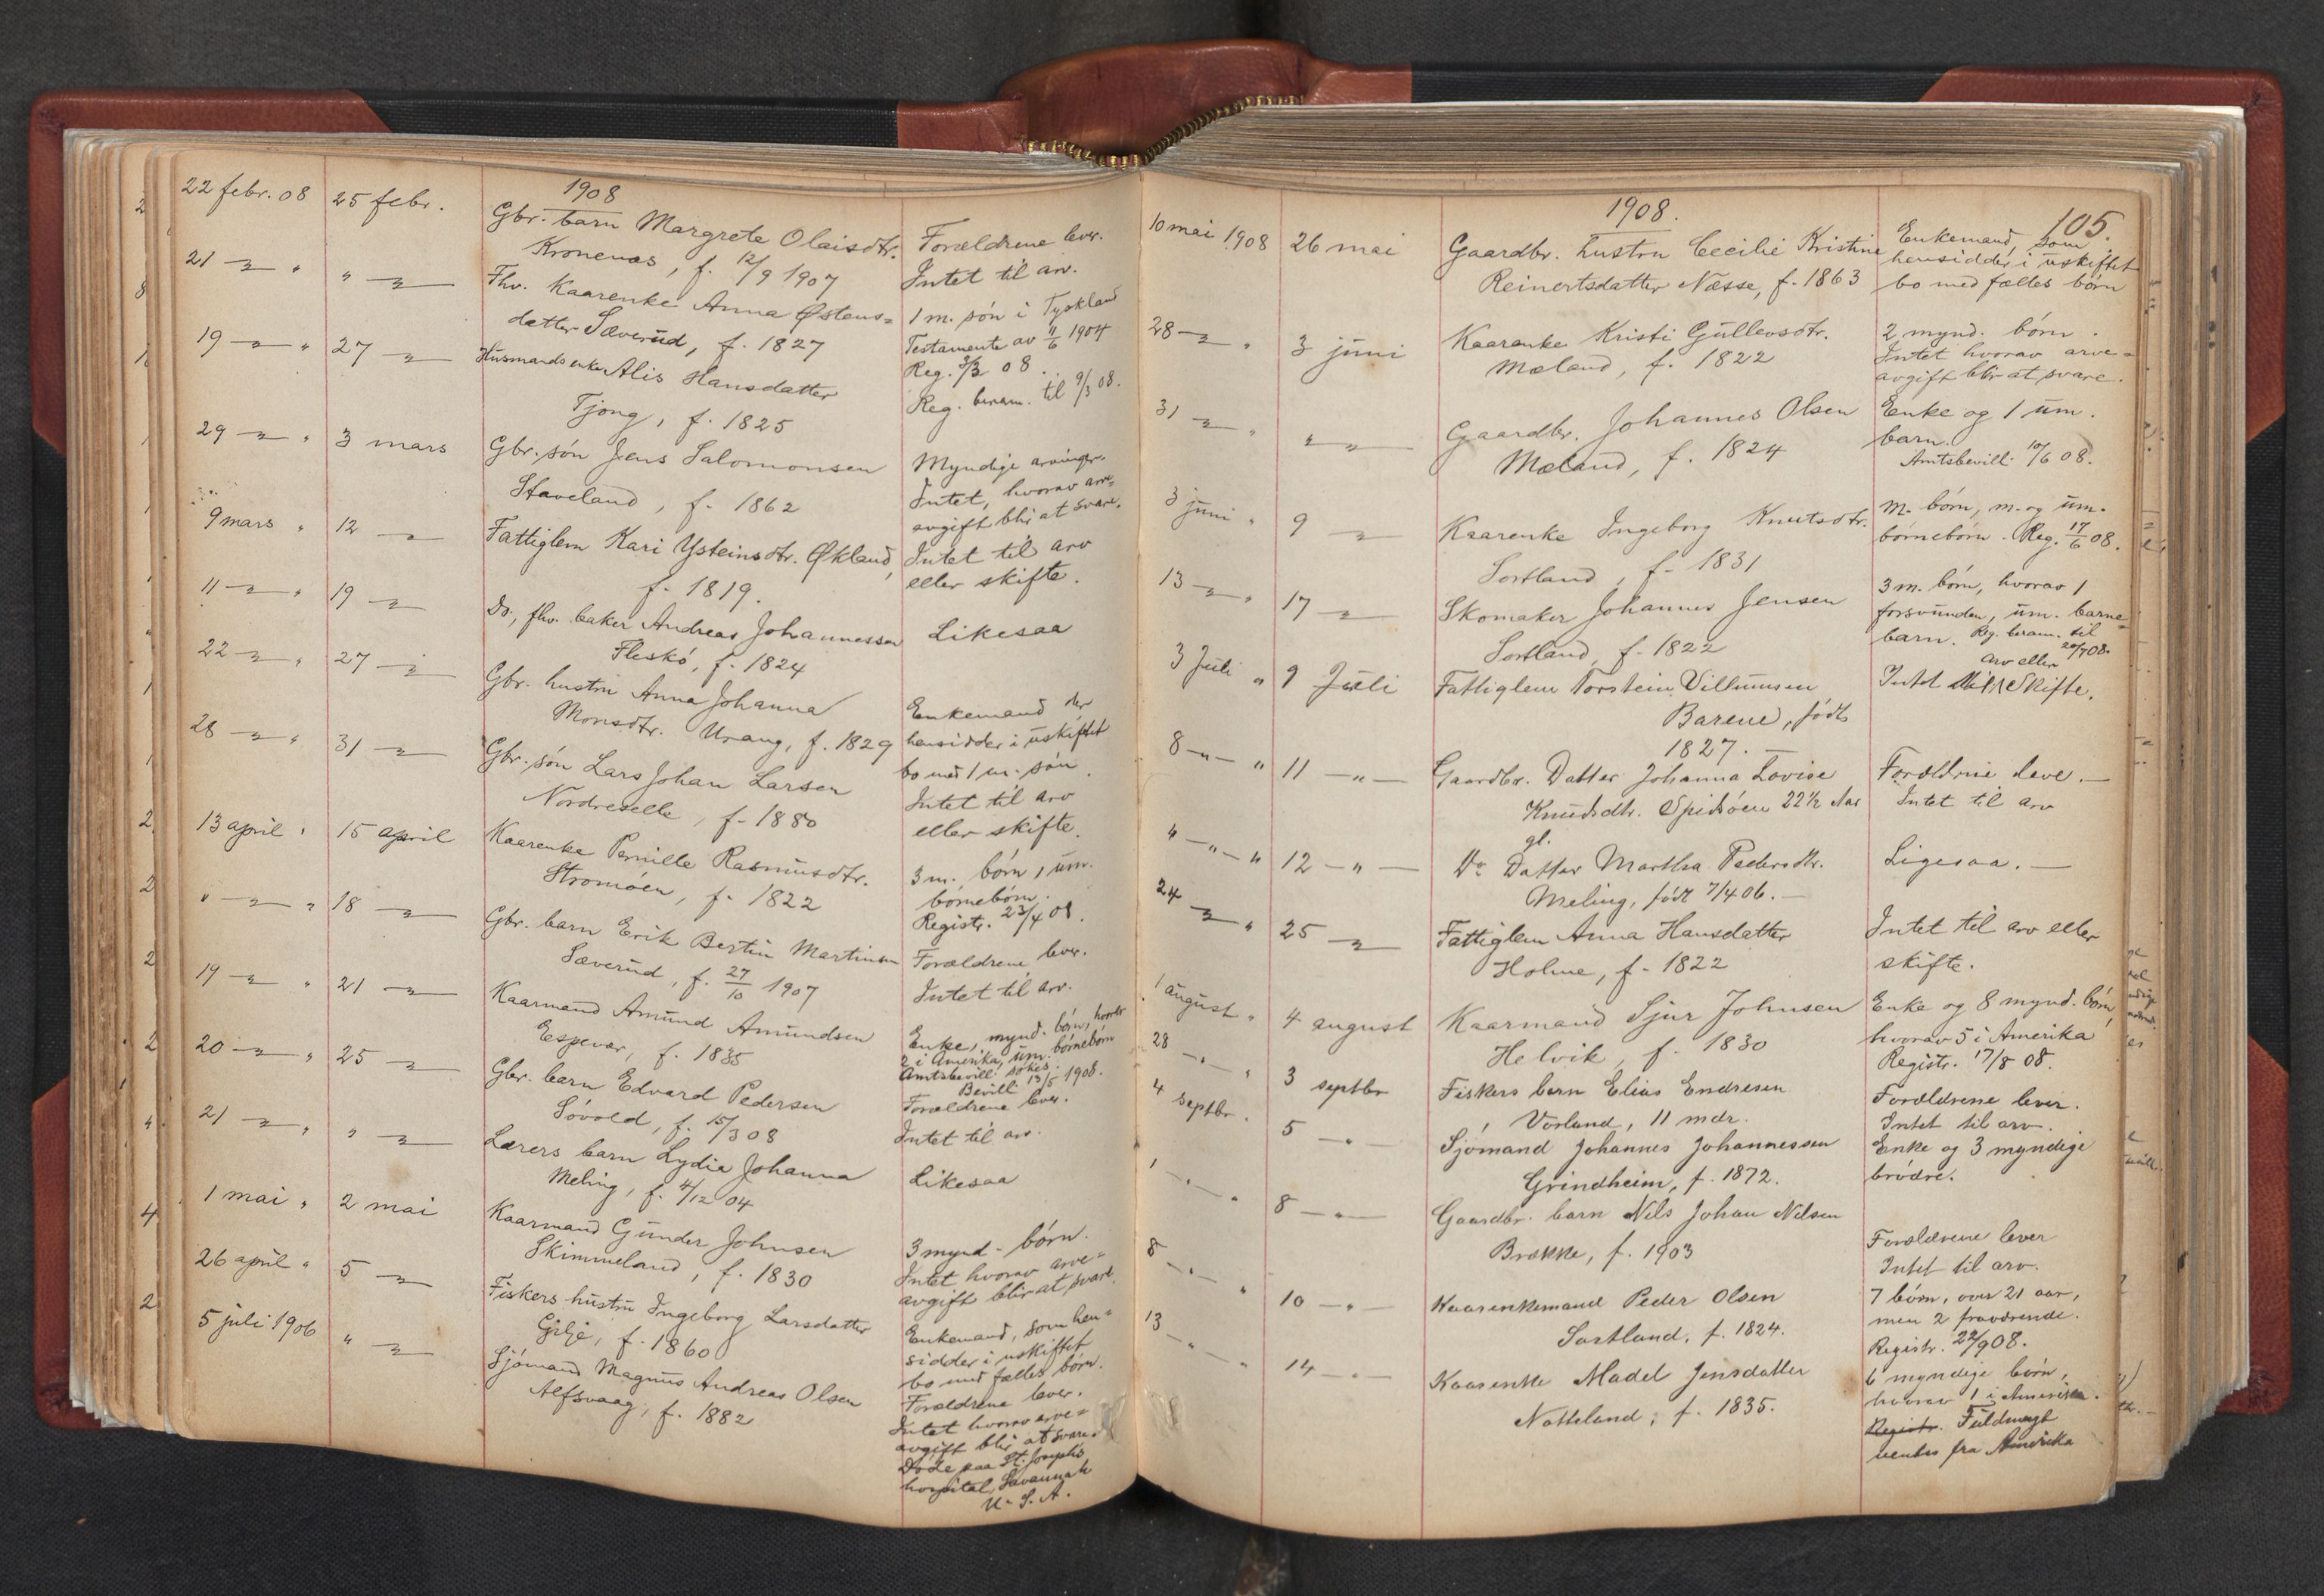 1908
22 febr. 08 25 febr. Gbr. barn Margrete Olaisdtr. Forældrene lever.
Kronenes, f. 12/9 1907 Intet til arv.
21 — " " — Fhv. Kaarenke Anna Østens= 1 m. søn i Tyskland
datter Sæverud, f. 1827 Testamente av 11/6 1904
Reg. 3/3 08.
19 — " 27 — Husmands enke Alis Hansdatter Reg. beram. til 9/3 08.
Tjong, f. 1825
29 — " 3 mars Gbr. søn Jens Salomonsen Myndige arvinger.
Staveland, f. 1862 Intet, hvorav arve=
avgift blir at svare.
9 mars " 12 — Fattiglem Kari Ysteinsdtr. Økland, Intet til arv
f. 1819. eller skifte.
11 — " 19 — Do, fhv. baker Andreas Johannessen Likesaa
Fleskø, f. 1824
22 — " 27 — Gbr. hustru Anna Johanna Enkemand der
Monsdtr. Urang, f. 1829 hensidder i uskiftet
bo med 1 m. søn.
28 — " 31 — Gbr. søn Lars Johan Larsen Intet til arv
Nordreselle, f. 1880 eller skifte.
13 april " 15 april Kaarenke Pernille Rasmusdtr. 3 m. børn, um.
Strømøen, f. 1822 børnebørn.
Registr. 23/4 08.
" — " 18 — Gbr. barn Erik Bertin Martinsen Forældrene lever.
Sæverud, f. 27/10 1907 Intet til arv.
19 — " 21 — Kaarmand Amund Amundsen Enke, mynd. børn, hvorav
Espevær, f. 1835 2 i Amerika, um. børnebørn
Amtsbevill. søkes.
Bevill. 13/5 1908.
20 — " 25 — Gbr. barn Edvard Pedersen Forældrene lever.
Søvold, f. 15/3 08 Intet til arv.
21 — " " — Lærers barn Lydia Johanna Likesaa
Meling, f. 4/12 04
1 mai " 2 mai Kaarmand Gunder Johnsen 3 mynd. børn.
Skimmeland, f. 1830 Intet hvorav arve=
avgift blir at svare.
26 april " 5 — Fiskers hustru Ingeborg Larsdatter Enkemand, som hen=
Gilje, f. 1860 sidder i uskiftet
bo med fælles børn.
5 juli 1906 " — Sjømand Magnus Andreas Olsen Forældrene lever.
Alfsvaag, f. 1882 Intet hvorav arve=
avgift blir at svare.
Døde paa St. Josephs
hospital, Savannah
U. S. A.
1908. 105.
10 mai 1908 26 mai Gaardbr. hustru Cecilie Kristine Enkemand, som
Reinertsdatter Næsse, f. 1863 hensidder i uskiftet
bo med fælles børn
28 — " 3 juni Kaarenke Kristi Gullevsdtr. 2 mynd. børn.
Mæland, f. 1822 Intet hvorav arve=
avgift blir at svare.
31 — " " — Gaardbr. Johannes Olsen Enke og 1 um.
Mæland, f. 1824 barn.
Amtsbevill. 10/6 08.
3 juni " 9 — Kaarenke Ingeborg Knutsdtr. M. børn, m. og um.
Sortland, f. 1831 børnebørn. Reg. 17/6 08.
13 — " 17 — Skomaker Johannes Jensen 3 m. børn, hvorav 1
Sortland, f. 1822 forsvunden, um. barne=
barn. Reg. beram. til
20/7 08.
3 Juli " 9 Juli Fattiglem Torstein Villumsen Intet til arv eller Skifte.
Barene, født
1827. —
8 — " — " 11 — " — Gaardbr. Datter Johanna Lovise Forældrene leve. —
Knudsdtr. Spidsøen 22½ Aar Intet til arv
gl.
" — " — " 12 — " — Do Datter Martha Pedersdtr. Ligesaa. —
Meling, født 7/4 06. —
24 — " 25 — Fattiglem Anna Hansdatter Intet til arv eller
Holme, f. 1822 skifte.
1 august " 4 august Kaarmand Sjur Johnsen Enke og 8 mynd. børn,
Helvik, f. 1830 hvorav 5 i Amerika
Registr. 17/8 08.
28 — " — " 3 septbr Fiskers barn Elias Endresen Forældrene lever.
Vorland, 11 mdr. Intet til arv.
4 septbr. 5 — " — Sjømand Johannes Johannessen Enke og 3 myndige
Grindheim, f. 1872. brødre.
1 — " — " 8 — " — Gaardbr. barn Nils Johan Nilsen Forældrene lever
Brække, f. 1903 Intet til arv.
8 — " — " 10 — " — Kaarenkemand Peder Olsen 7 børn, over 21 aar,
Sortland, f. 1824. men 2 fraværende.
Registr. 22/9 08.
13 — " — " 14 — " — Kaarenke Madel Jensdatter 6 myndige børn,
Natteland, f. 1835. hvorav 1 i Amerika.
Registr. Fuldmagt
ventes fra Amerika